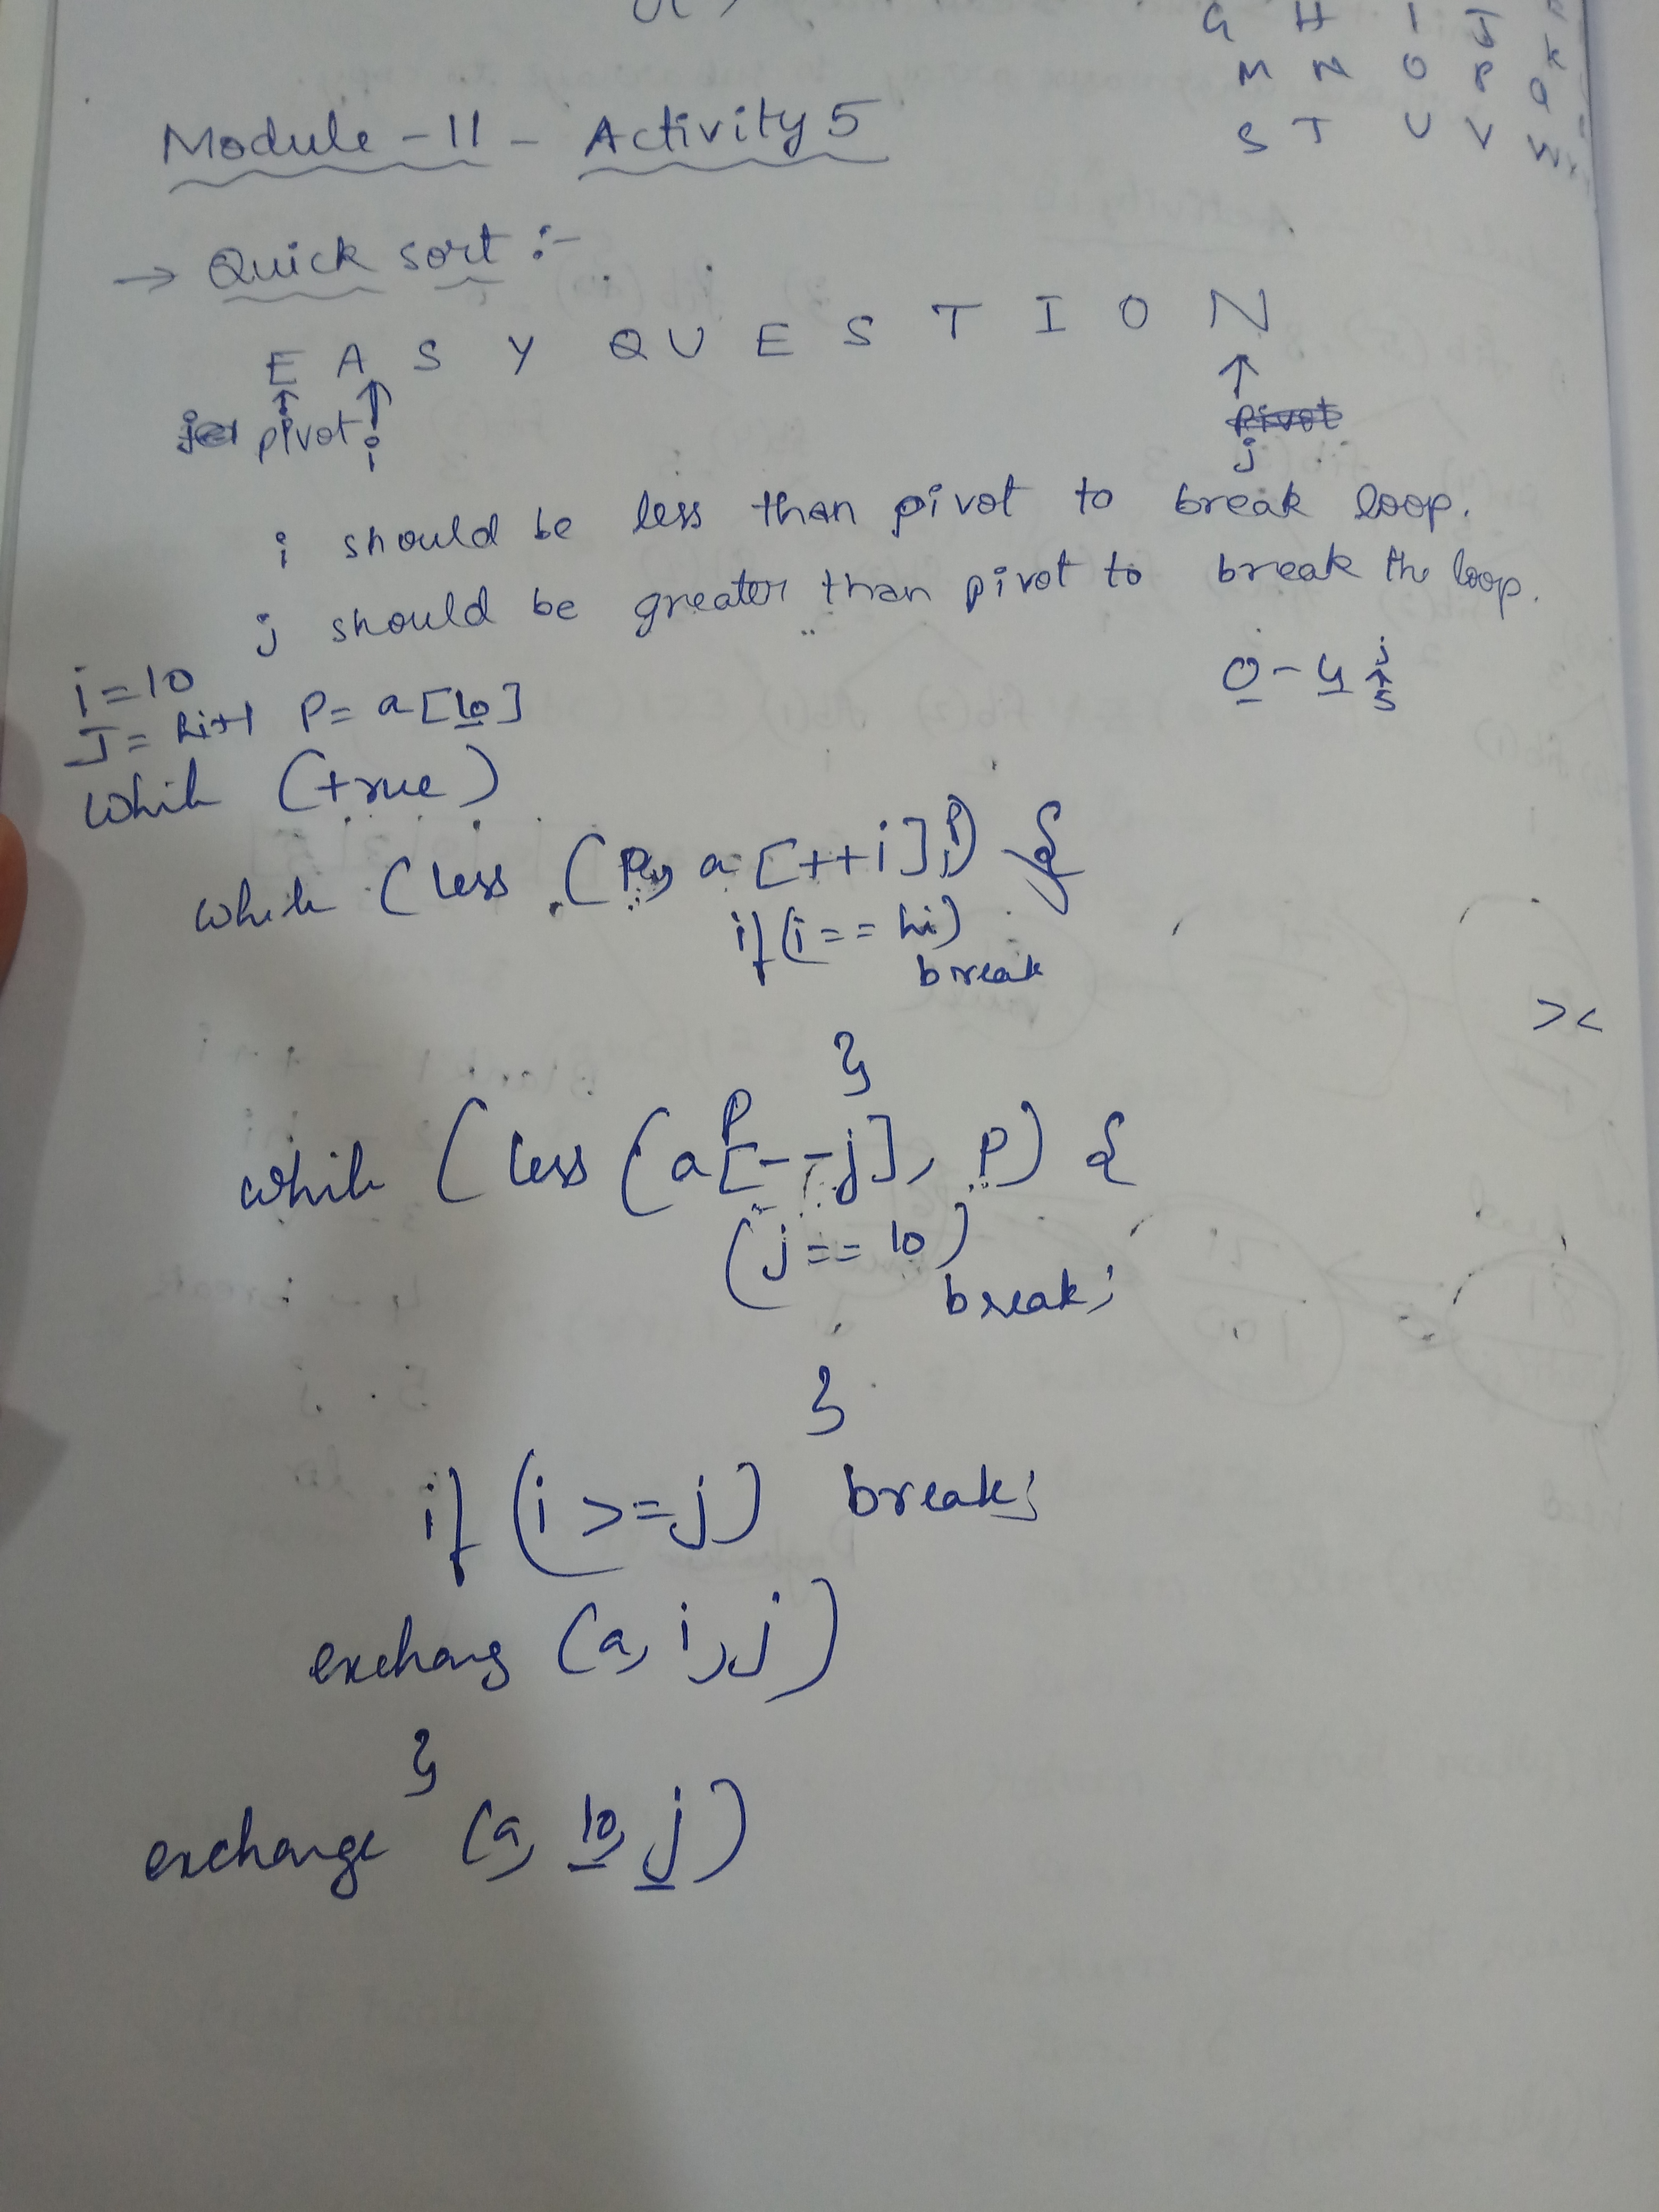 G H I J K
M N O P Q
S T U V W
Module - 11 - Activity 5
→ Quick sort :-
E A S Y Q U E S T I O N
pivot i j
i should be less than pivot to break loop.
j should be greater than pivot to break the loop.
0 - 4 j
5
i = lo
J = hi+1 P = a[lo]
while (true)
while (less (P, a[++i], P) {
if (i == hi)
break
}
while (less (a[--j], P) {
P
(j == lo)
break;
}
if (i >= j) break;
exchang (a, i, j)
}
exchange (a, lo, j)
> <